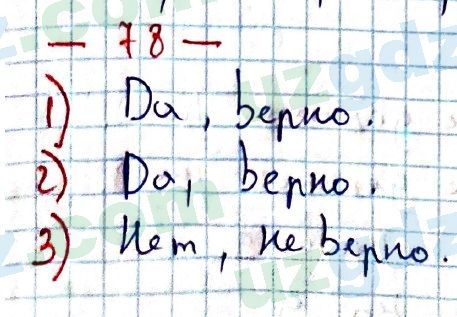 — 78 —
1) Да, верно.
2) Да, верно.
3) Нет, не верно.